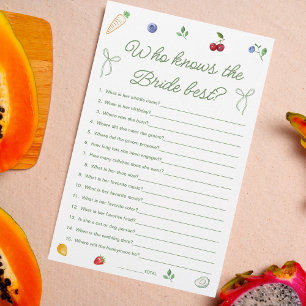 Who knows the
Bride best?
1. What is her middle name?
2. When is her birthday?
3. Where was she born?
4. Where did she meet the groom?
5. Where did the groom propose?
6. How long has she been engaged?
7. How many children does she want?
8. What is her shoe size?
9. What is her favorite movie?
10. What is her favorite song?
11. What is her favorite color?
12. What is her favorite food?
13. Is she a cat or dog person?
14. When is the wedding date?
15. Where will the honeymoon be?
TOTAL